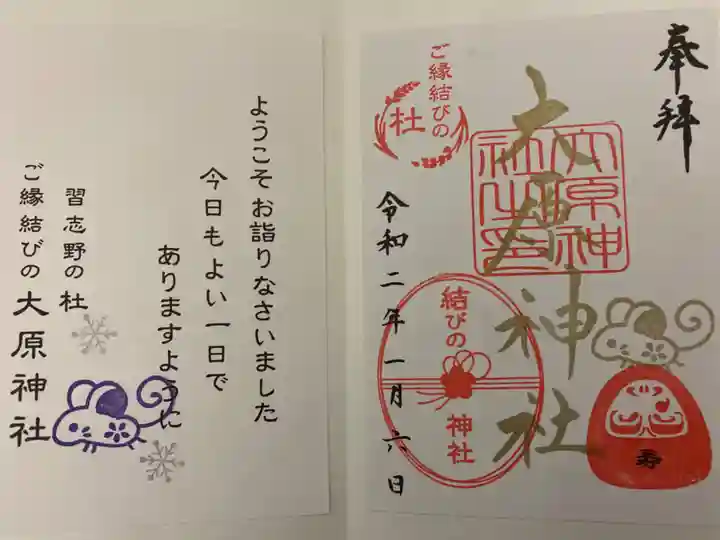 奉拝
大原神社
大原神
社之印
ご縁結びの
杜
結びの
神社
令和二年一月六日
寿
ようこそお詣りなさいました
今日もよい一日で
ありますように
習志野の杜
ご縁結びの大原神社